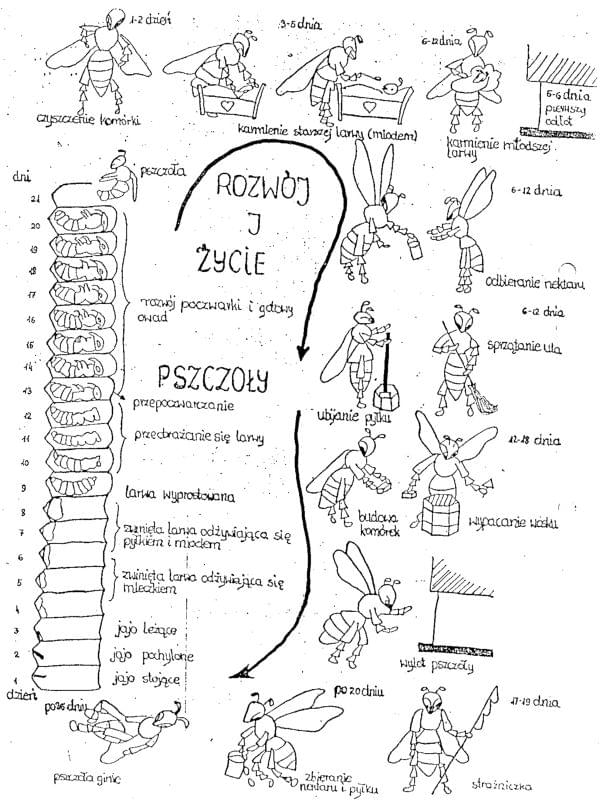 1-2 dzień
czyszczenie komórki
3-5 dnia
karmienie starszej larwy (miodem)
6-12 dnia
karmienie młodszej
larwy
5-6 dnia
pierwszy
oblot
ROZWÓJ
I
ŻYCIE
PSZCZOŁY
dni
pszczoła
21
20
19
18
17
16
15
14
13
12
11
10
9
8
7
6
5
4
3
2
1
dzień
rozwój poczwarki i gotowy
owad
przepoczwarczanie
przeobrażanie się larwy
larwa wyprostowana
zwinięta larwa odżywiająca się
pyłkiem i miodem
zwinięta larwa odżywiająca się
mleczkiem
jajo leżące
jajo pochylone
jajo stojące
6-12 dnia
odbieranie nektaru
6-12 dnia
sprzątanie ula
ubijanie pyłku
12-18 dnia
budowa
komórek
wypacanie wosku
wylot pszczoły
17-19 dnia
strażniczka
po 20 dniu
zbieranie
nektaru i pyłku
pszczoła ginie